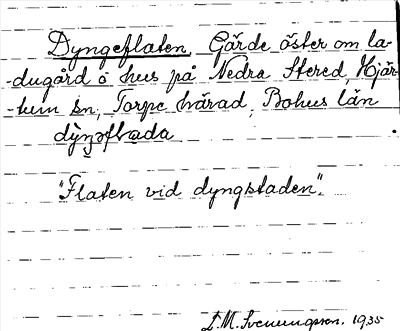 Dyngeflaten, Gärde öster om la-
-dugård o hus på Nedra Stered, Hjär-
-tum sn, Torpe härad, Bohus län
dỳŋəflada
"Flaten vid dyngstaden".
S. M. Svenungsson. 1935